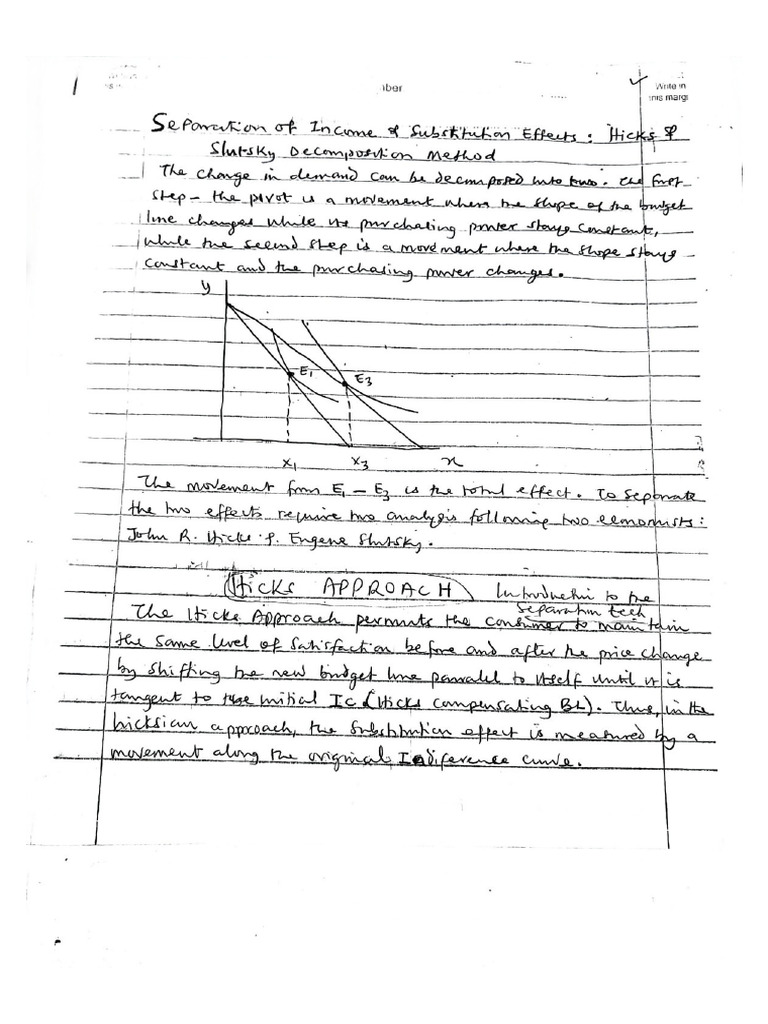 1
ber
Write in
this margi
Separation of Income & Substitution Effects: Hicks &
Slutsky Decomposition Method
The change in demand can be decomposed into two. The first
step - the pivot is a movement where the slope of the budget
line changes while its purchasing power stays constant,
while the second step is a movement where the slope stays
constant and the purchasing power changes.
y
E1
E3
X1 X3 x
The movement from E1 - E3 is the total effect. To separate
the two effects require two analysis following two economists:
John R. Hicks & Eugene Slutsky.
Hicks APPROACH
Introduction to the
separation tech
The Hicks Approach permits the consumer to maintain
the same level of satisfaction before and after the price change
by shifting the new budget line parralel to itself until it is
tangent to the initial Ic (Hicks compensating BL). Thus, in the
hicksian approach, the substitution effect is measured by a
movement along the original Indiference curve.